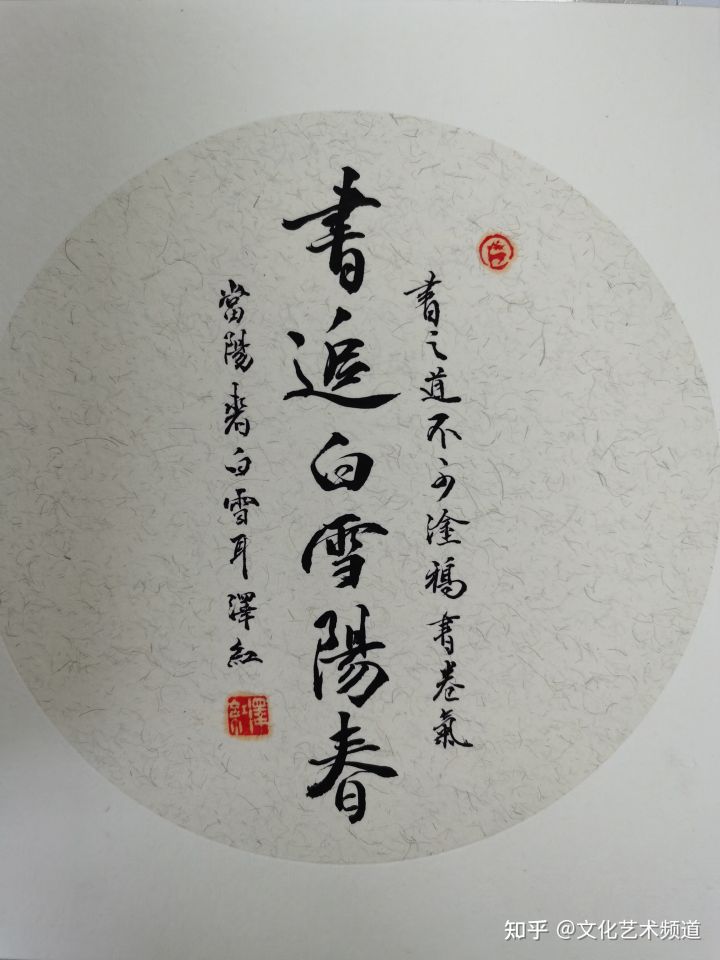 書之道不可塗鴉書卷氣
書追白雪陽春
當陽春白雪耳澤紅
澤紅
知乎 @文化艺术频道